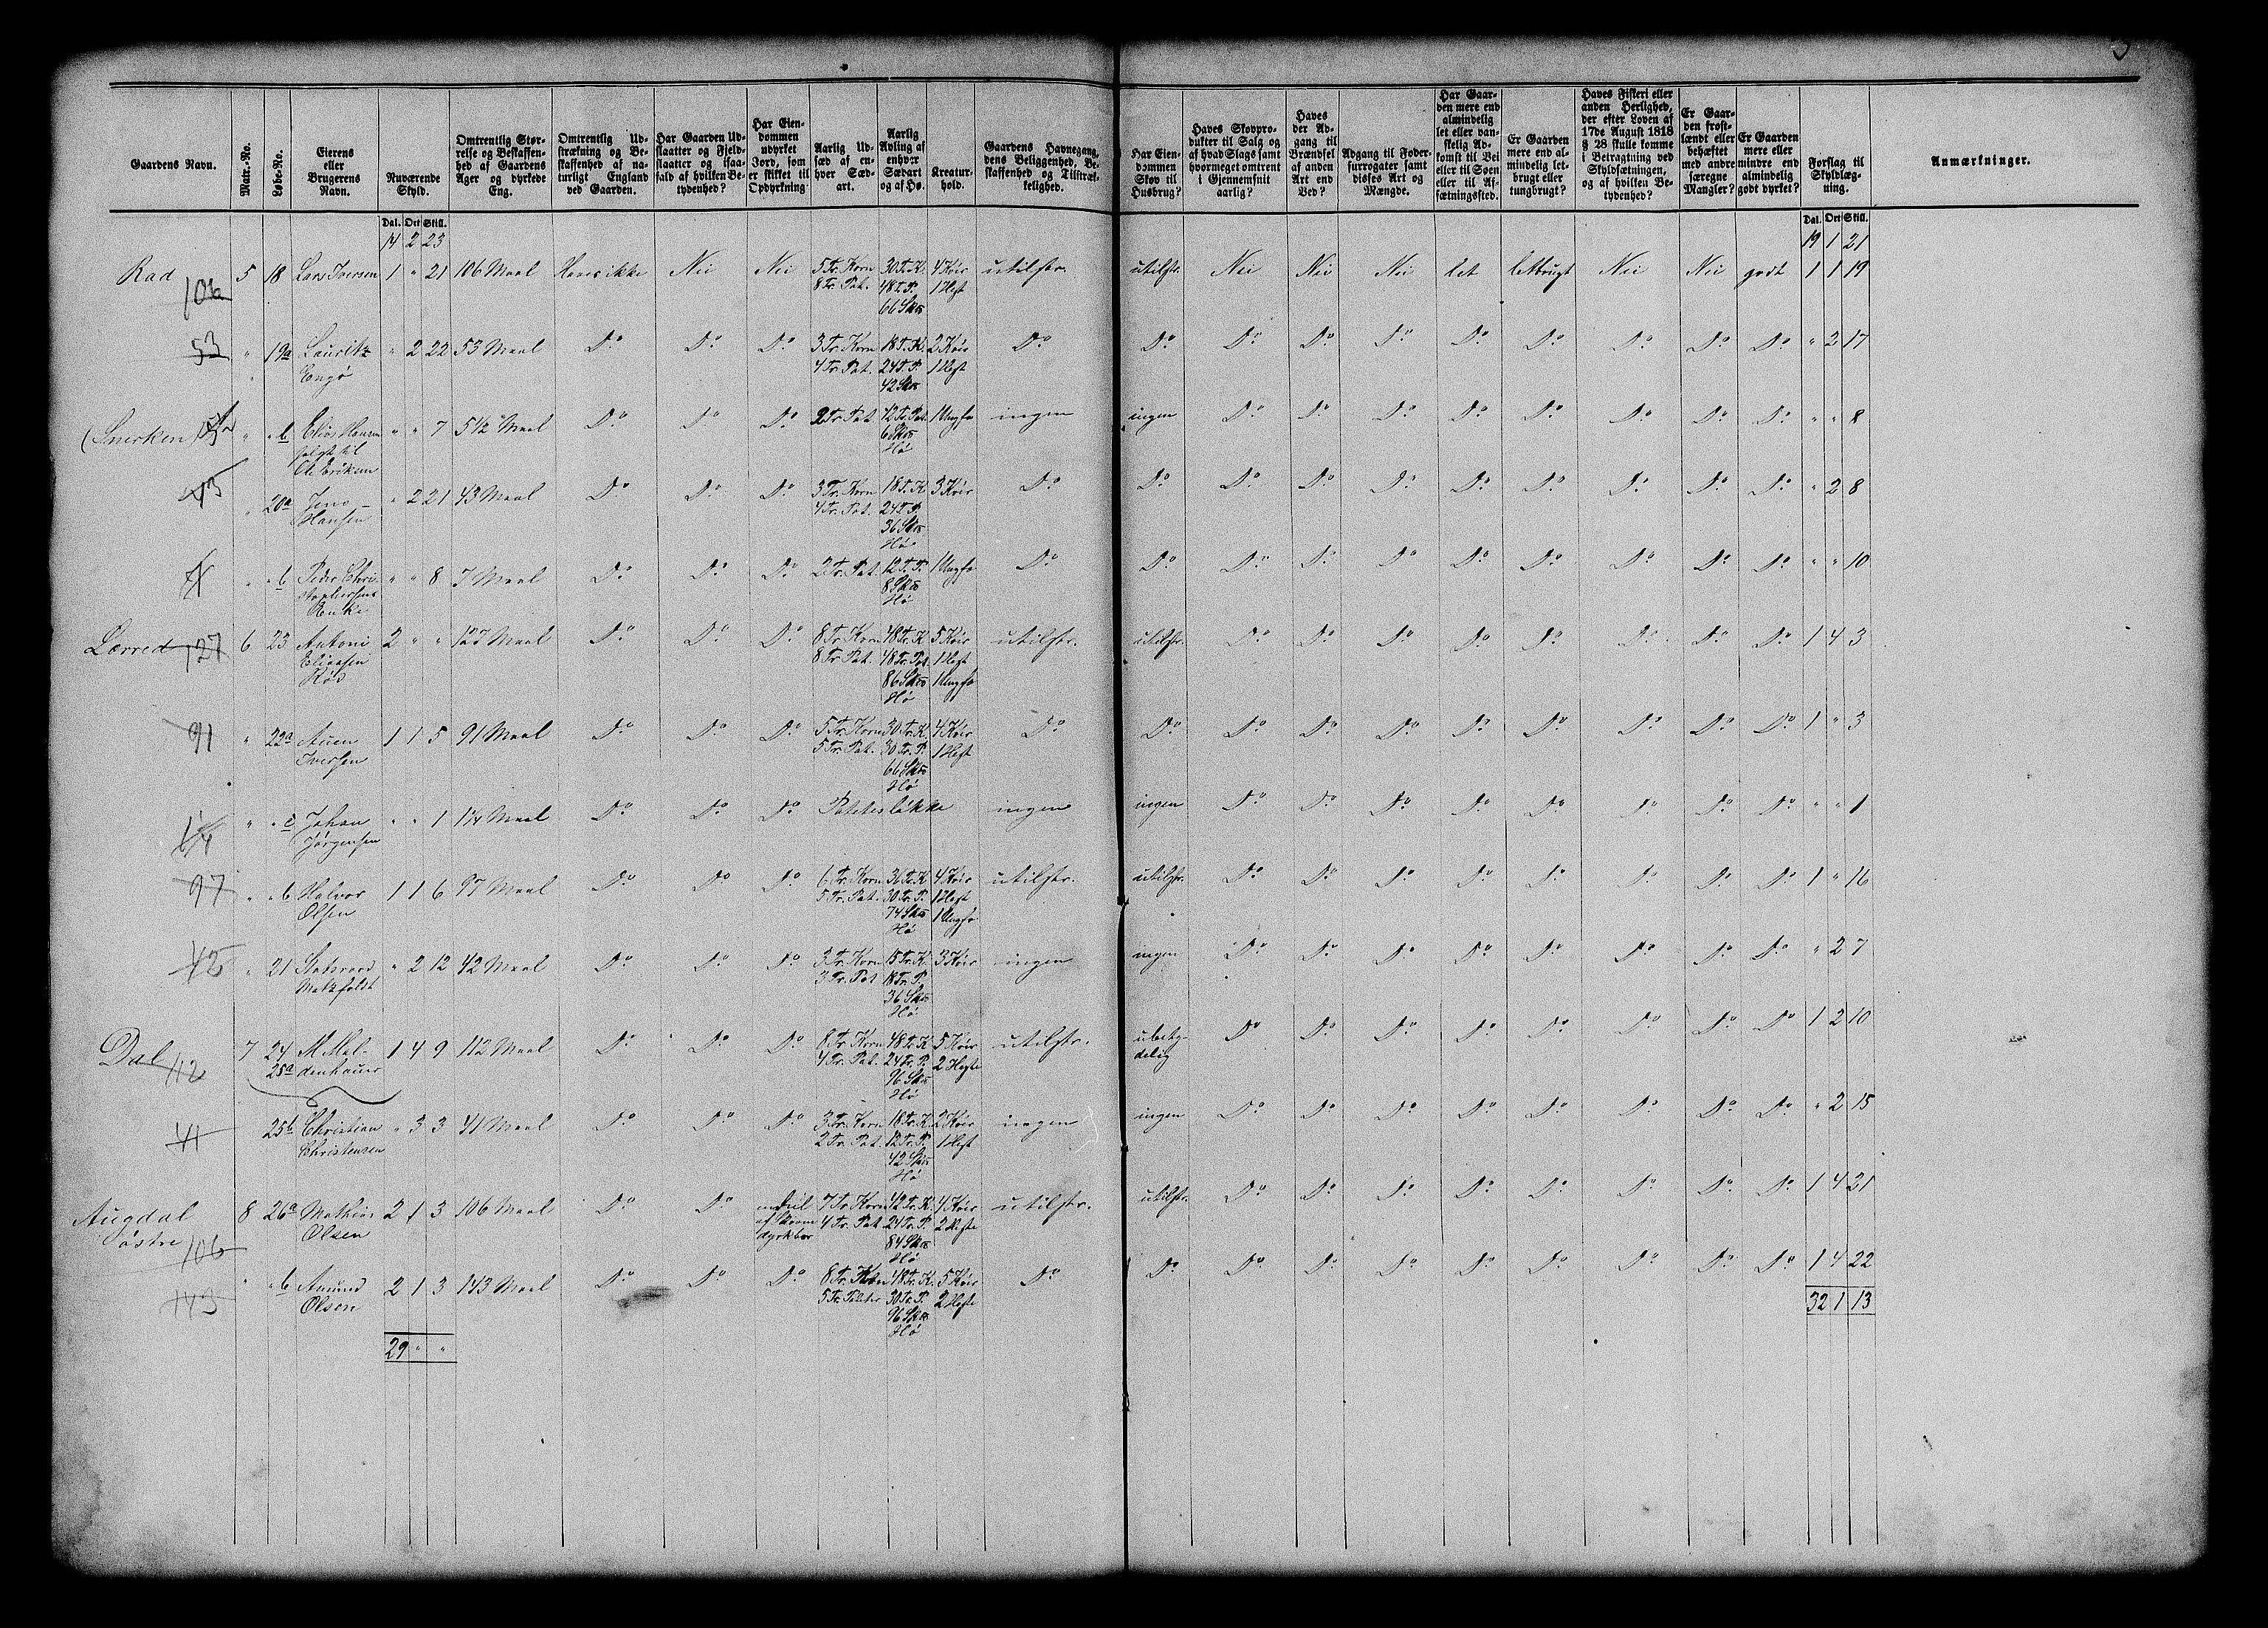 Gaardens Navn. | Matr.-No. | Løbe-No. | Eierens eller Brugerens Navn. | Nuværende Skyld. | Omtrentlig Størrelse og Beskaffenhed af Gaardens Ager og dyrkede Eng. | Omtrentlig Udstrækning og Beskaffenhed af naturligt England ved Gaarden. | Har Gaarden Udslaatter og Fjeldslaatter og isaafald af hvilken Betydenhed? | Har Eiendommen udyrket Jord, som er skikket til Opdyrkning | Aarlig Udsæd af enhver Sædart. | Aarlig Avling af enhver Sædart og af Hø. | Kreaturhold. | Gaardens Havnegang, dens Beliggenhed, Beskaffenhed og Tilstrækkelighed. | Har Eiendommen Skov til Husbrug? | Haves Skovprodukter til Salg og af hvad Slags samt hvormeget omtrent i Gjennemsnit aarlig? | Haves der Adgang til Brændsel af anden Art end Ved? | Adgang til Fodersurrogater samt disses Art og Mængde. | Har Gaarden mere end almindelig let eller vanskelig Adkomst til Vei eller til Søen eller til Afsætningssted. | Er Gaarden mere end almindelig letbrugt eller tungbrugt? | Haves Fiskeri eller anden Herlighed, der efter Loven af 17de August 1818 § 28 skulle komme i Betragtning ved Skyldsætningen, og af hvilken Betydenhed? | Er Gaarden frostlændt eller behæftet med andre særegne Mangler? | Er Gaarden mere eller mindre end almindelig godt dyrket? | Forslag til Skyldlægning. | Anmærkninger.
Dal. Ort Skill. | Dal. Ort Skill.
14 2 23 | 19 1 21
Rad 106 | 5 | 18 | Lars Iversen | 1 " 21 | 106 Maal | Haves ikke | Nei | Nei | 5 Tr. Korn 8 Tr. Pot. | 30 T. K. 48 T. P. 66 Sk℔ | 4 Køir 1 Hest | utilstr. | utilstr. | Nei | Nei | Nei | let | letbrugt | Nei | Nei | godt | 1 1 19
53 | " | 19a | Lauritz Engø | " 2 22 | 53 Maal | Do | Do | Do | 3 Tr. Korn 4 Tr. Pot. | 18 T. K. 24 T. P. 42 Sk℔ | 2 Køir 1 Hest | Do | Do | Do | Do | Do | Do | Do | Do | Do | Do | " 2 17
(Snerken) | " | " b | Elias Hansen solgt til Ole Eriksen | " " 7 | 5 1/2 Maal | Do | Do | Do | 2 Tr. Pot. | 12 Tr. Pot. 6 Sk℔ Hø | 1 Ungfæ | ingen | ingen | Do | Do | Do | Do | Do | Do | Do | Do | " " 8
43 | " | 20a | Jens Hansen | " 2 21 | 43 Maal | Do | Do | Do | 3 Tr. Korn 4 Tr. Pot. | 18 T. K 24 T. P. 36 Sk℔ Hø | 3 Køir | Do | Do | Do | Do | Do | Do | Do | Do | Do | Do | " 2 8
7 | " | " b | Peder Christophersens Enke | " " 8 | 7 Maal | Do | Do | Do | 2 Tr. Pot. | 12 T. P. 8 Sk℔ Hø | 1 Ungfæ | Do | Do | Do | Do | Do | Do | Do | Do | Do | Do | " " 10
Lærred 127 | 6 | 23 | Antoni Eliasen Rød | 2 " " | 127 Maal | Do | Do | Do | 8 Tr. Korn 8 Tr. Pot. | 48 Tr. K 48 Tr. Pot. 86 Sk℔ Hø | 5 Køir 1 Hest 1 Ungfæ | utilstr. | utilstr. | Do | Do | Do | Do | Do | Do | Do | Do | 1 4 3
91 | " | 22a | Auen Iversen | 1 1 5 | 91 Maal | Do | Do | Do | 5 Tr. Korn 5 Tr. Pot. | 30 Tr. K. 30 Tr. P. 66 Sk℔ Hø | 4 Køir 1 Hest | Do | Do | Do | Do | Do | Do | Do | Do | Do | Do | 1 " 3
1/4 | " | " c | Johan Jørgensen | " " 1 | 1/4 Maal | Do | Do | Do | Potetesløkke | ingen | ingen | Do | Do | Do | Do | Do | Do | Do | Do | " " 1
97 | " | " b | Halvor Olsen | 1 1 6 | 97 Maal | Do | Do | Do | 6 Tr. Korn 5 Tr. Pot. | 36 Tr. K 30 Tr. P. 74 Sk℔ Hø | 4 Køir 1 Hest 1 Ungfæ | utilstr. | utilstr. | Do | Do | Do | Do | Do | Do | Do | Do | 1 " 16
42 | " | 21 | Statsraad Motzfeldt | " 2 12 | 42 Maal | Do | Do | Do | 3 Tr. Korn 3 Tr. Pot | 15 Tr. K. 18 Tr. P. 36 Sk℔ Hø | 3 Køir | ingen | ingen | Do | Do | Do | Do | Do | Do | Do | Do | " 2 7
Dal 112 | 7 | 24 25a | M. Moldenhauer | 1 4 9 | 112 Maal | Do | Do | Do | 8 Tr. Korn 4 Tr. Pot. | 48 Tr. K 24 Tr. P. 96 Sk℔ Hø | 5 Køir 2 Heste | utilstr. | ubetydelig | Do | Do | Do | Do | Do | Do | Do | Do | 1 2 10
41 | 25b | Christian Christensen | " 3 3 | 41 Maal | Do | Do | Do | 3 Tr. Korn 2 Tr. Pot. | 18 Tr. K. 12 Tr. P. 42 Sk℔ Hø | 2 Køir 1 Hest | ingen | ingen | Do | Do | Do | Do | Do | Do | Do | Do | " 2 15
Augdal østre 106 | 8 | 26a | Mathias Olsen | 2 1 3 | 106 Maal | Do | Do | en Deel af Havnen dyrkbar | 7 Tr. Korn 4 Tr. Pot | 42 Tr. K. 24 Tr. P. 84 Sk℔ Hø | 4 Køir 2 Heste | utilstr. | utilstr. | Do | Do | Do | Do | Do | Do | Do | Do | 1 4 21
143 | " | " b | Amund Olsen | 2 1 3 | 143 Maal | Do | Do | Do | 8 Tr. Korn 5 Tr. Poteter | 48 Tr. K. 30 Tr. P. 96 Sk℔ Hø | 5 Køir 2 Heste | Do | Do | Do | Do | Do | Do | Do | Do | Do | Do | 1 4 22
29 " " | 32 1 13